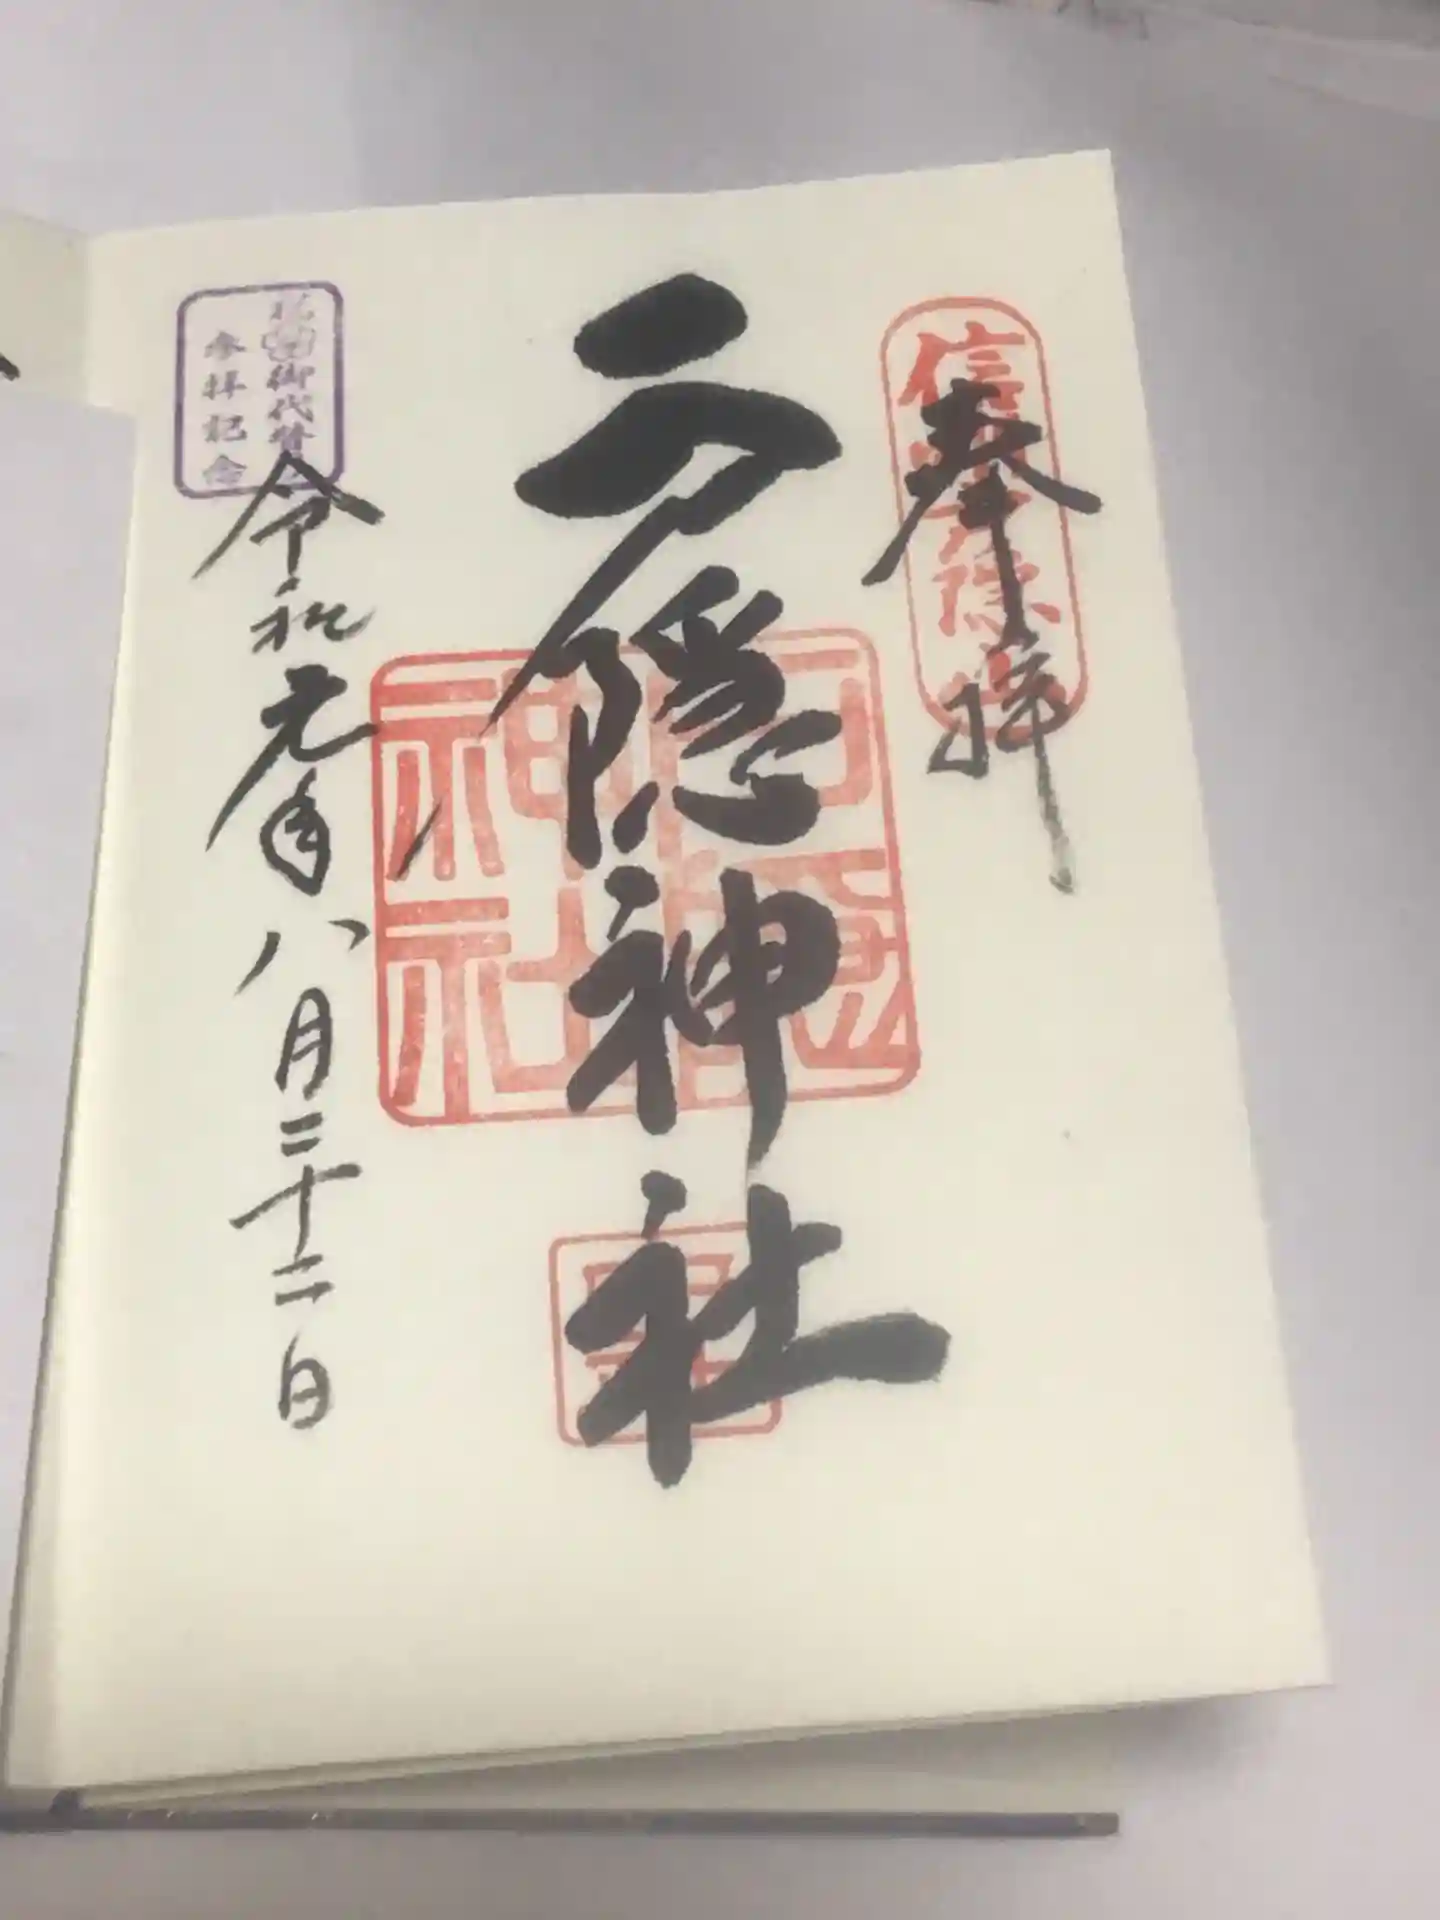 奉拝
信州戸隠山
戸隠神社
戸隠神社
御代替
参拝記念
令和元年八月二十二日